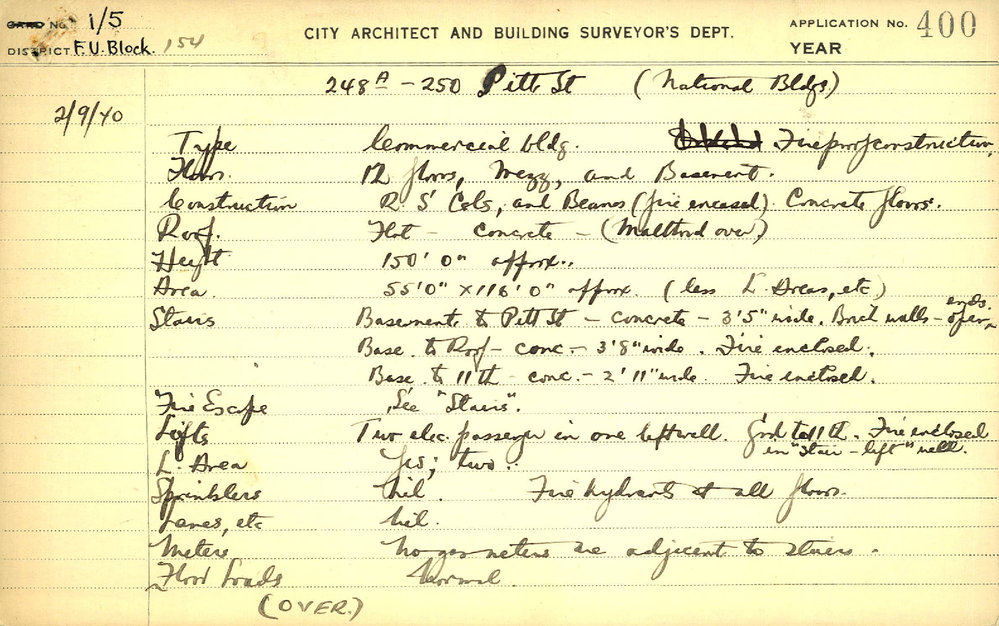 CARD No. 1/5
DISTRICT F.U. Block. 154
CITY ARCHITECT AND BUILDING SURVEYOR'S DEPT.
APPLICATION No. 400
YEAR
248A - 250 Pitt St (National Bldgs)
2/9/40
Type Commercial bldg. Fireproof construction
Floors. 12 floors, Mezz, and Basement.
Construction R. S' Cols, and Beams (fire encased). Concrete floors.
Roof. Flat - concrete - (Malthoid over)
Height 150' 0" approx..
Area. 55'0" x 116'0" approx. (less L. Areas, etc)
Stairs Basement to Pitt St - concrete - 3'5" wide. Brick walls - open ends.
Base. to Roof - conc. - 3'8" wide. Fire enclosed.
Base. to 11th - conc. - 2'11" wide. Fire enclosed.
Fire Escape See "Stairs".
Lifts Two elec. passenger in one liftwell. Grd to 11th. Fire enclosed
in "stair - lift" well.
L. Area Yes; two..
Sprinklers Nil. Fire hydrants at all floors.
Lanes, etc Nil.
Meters No gas meters are adjacent to stairs.
Floor Loads Normal.
(OVER.)